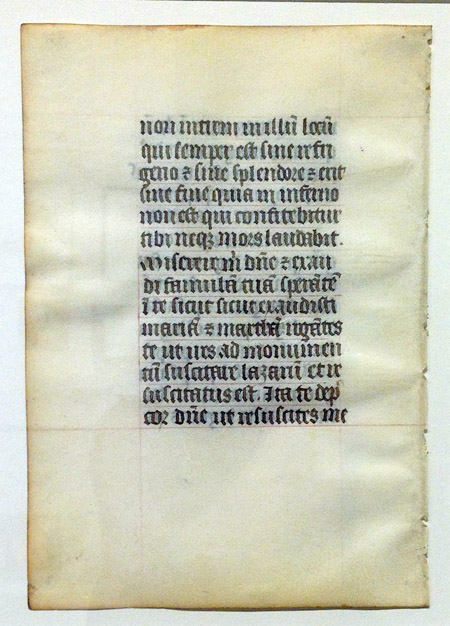 non intrem in illū locū
qui semper est sine refri
gerio ⁊ sine splendore ⁊ erit
sine fine quia in inferno
non est qui confitebitur
tibi neqꝫ mors laudabit.
Miserere m̄ dn̄e ⁊ exau
di famulā tuā sperātē
ī te sicut sicut exaudisti
mariā ⁊ marthā rogātes
te ut ires ad monumen
tū suscitare lazarū et re
suscitatus est. Ita te dep
cor dn̄e ut resuscites me